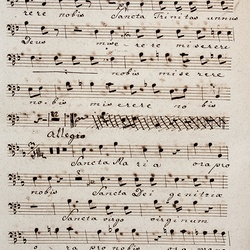 rere nobis Sancta Trinitas unnus
Deus miserere miserere
nobis miserere
nobis miserere nobis
Allegro
Sancta Maria ora pro
nobis Sancta Dei genitrix
Sancta virgo virginum
ora pro nobis ora pro